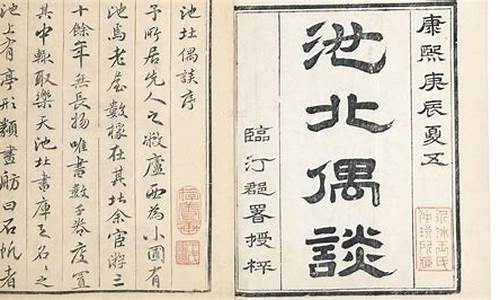 康熙庚辰夏五
池北偶談
臨汀郡署授梓
池北偶談序
予所居先人之敝廬西為小圃有
池焉老屋數椽在其北余宦游三
十餘年無長物唯書數千卷庋置
其中輒取樂天池北書庫之名〻之
池上有亭形類畫舫曰石帆者